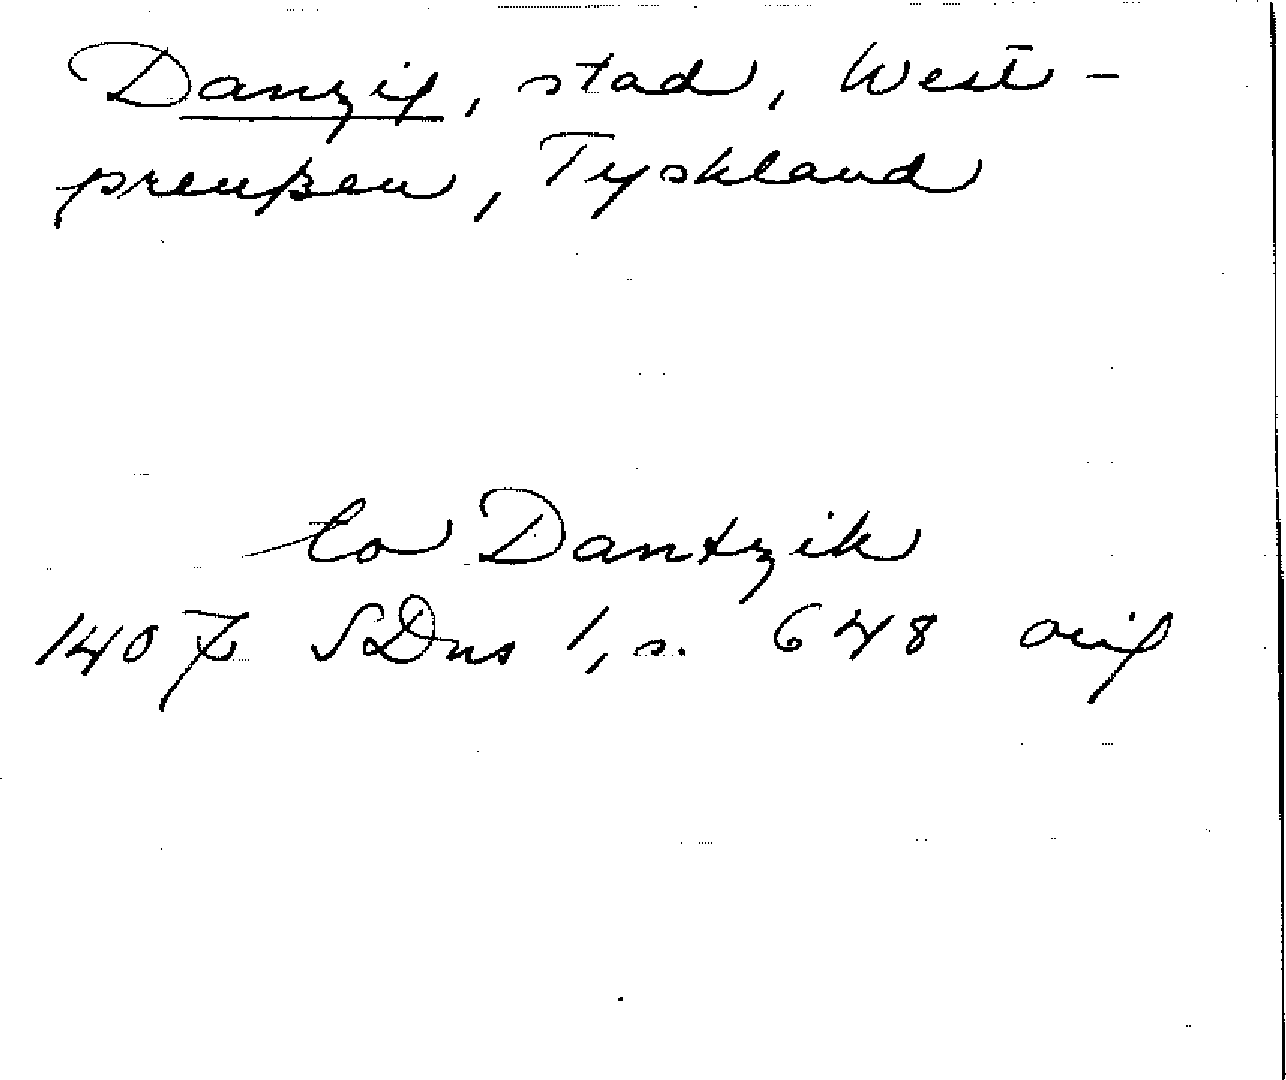 Danzig, stad, West-
preußen, Tyskland
to Dantzik
1407 SDns 1, s. 648 orig